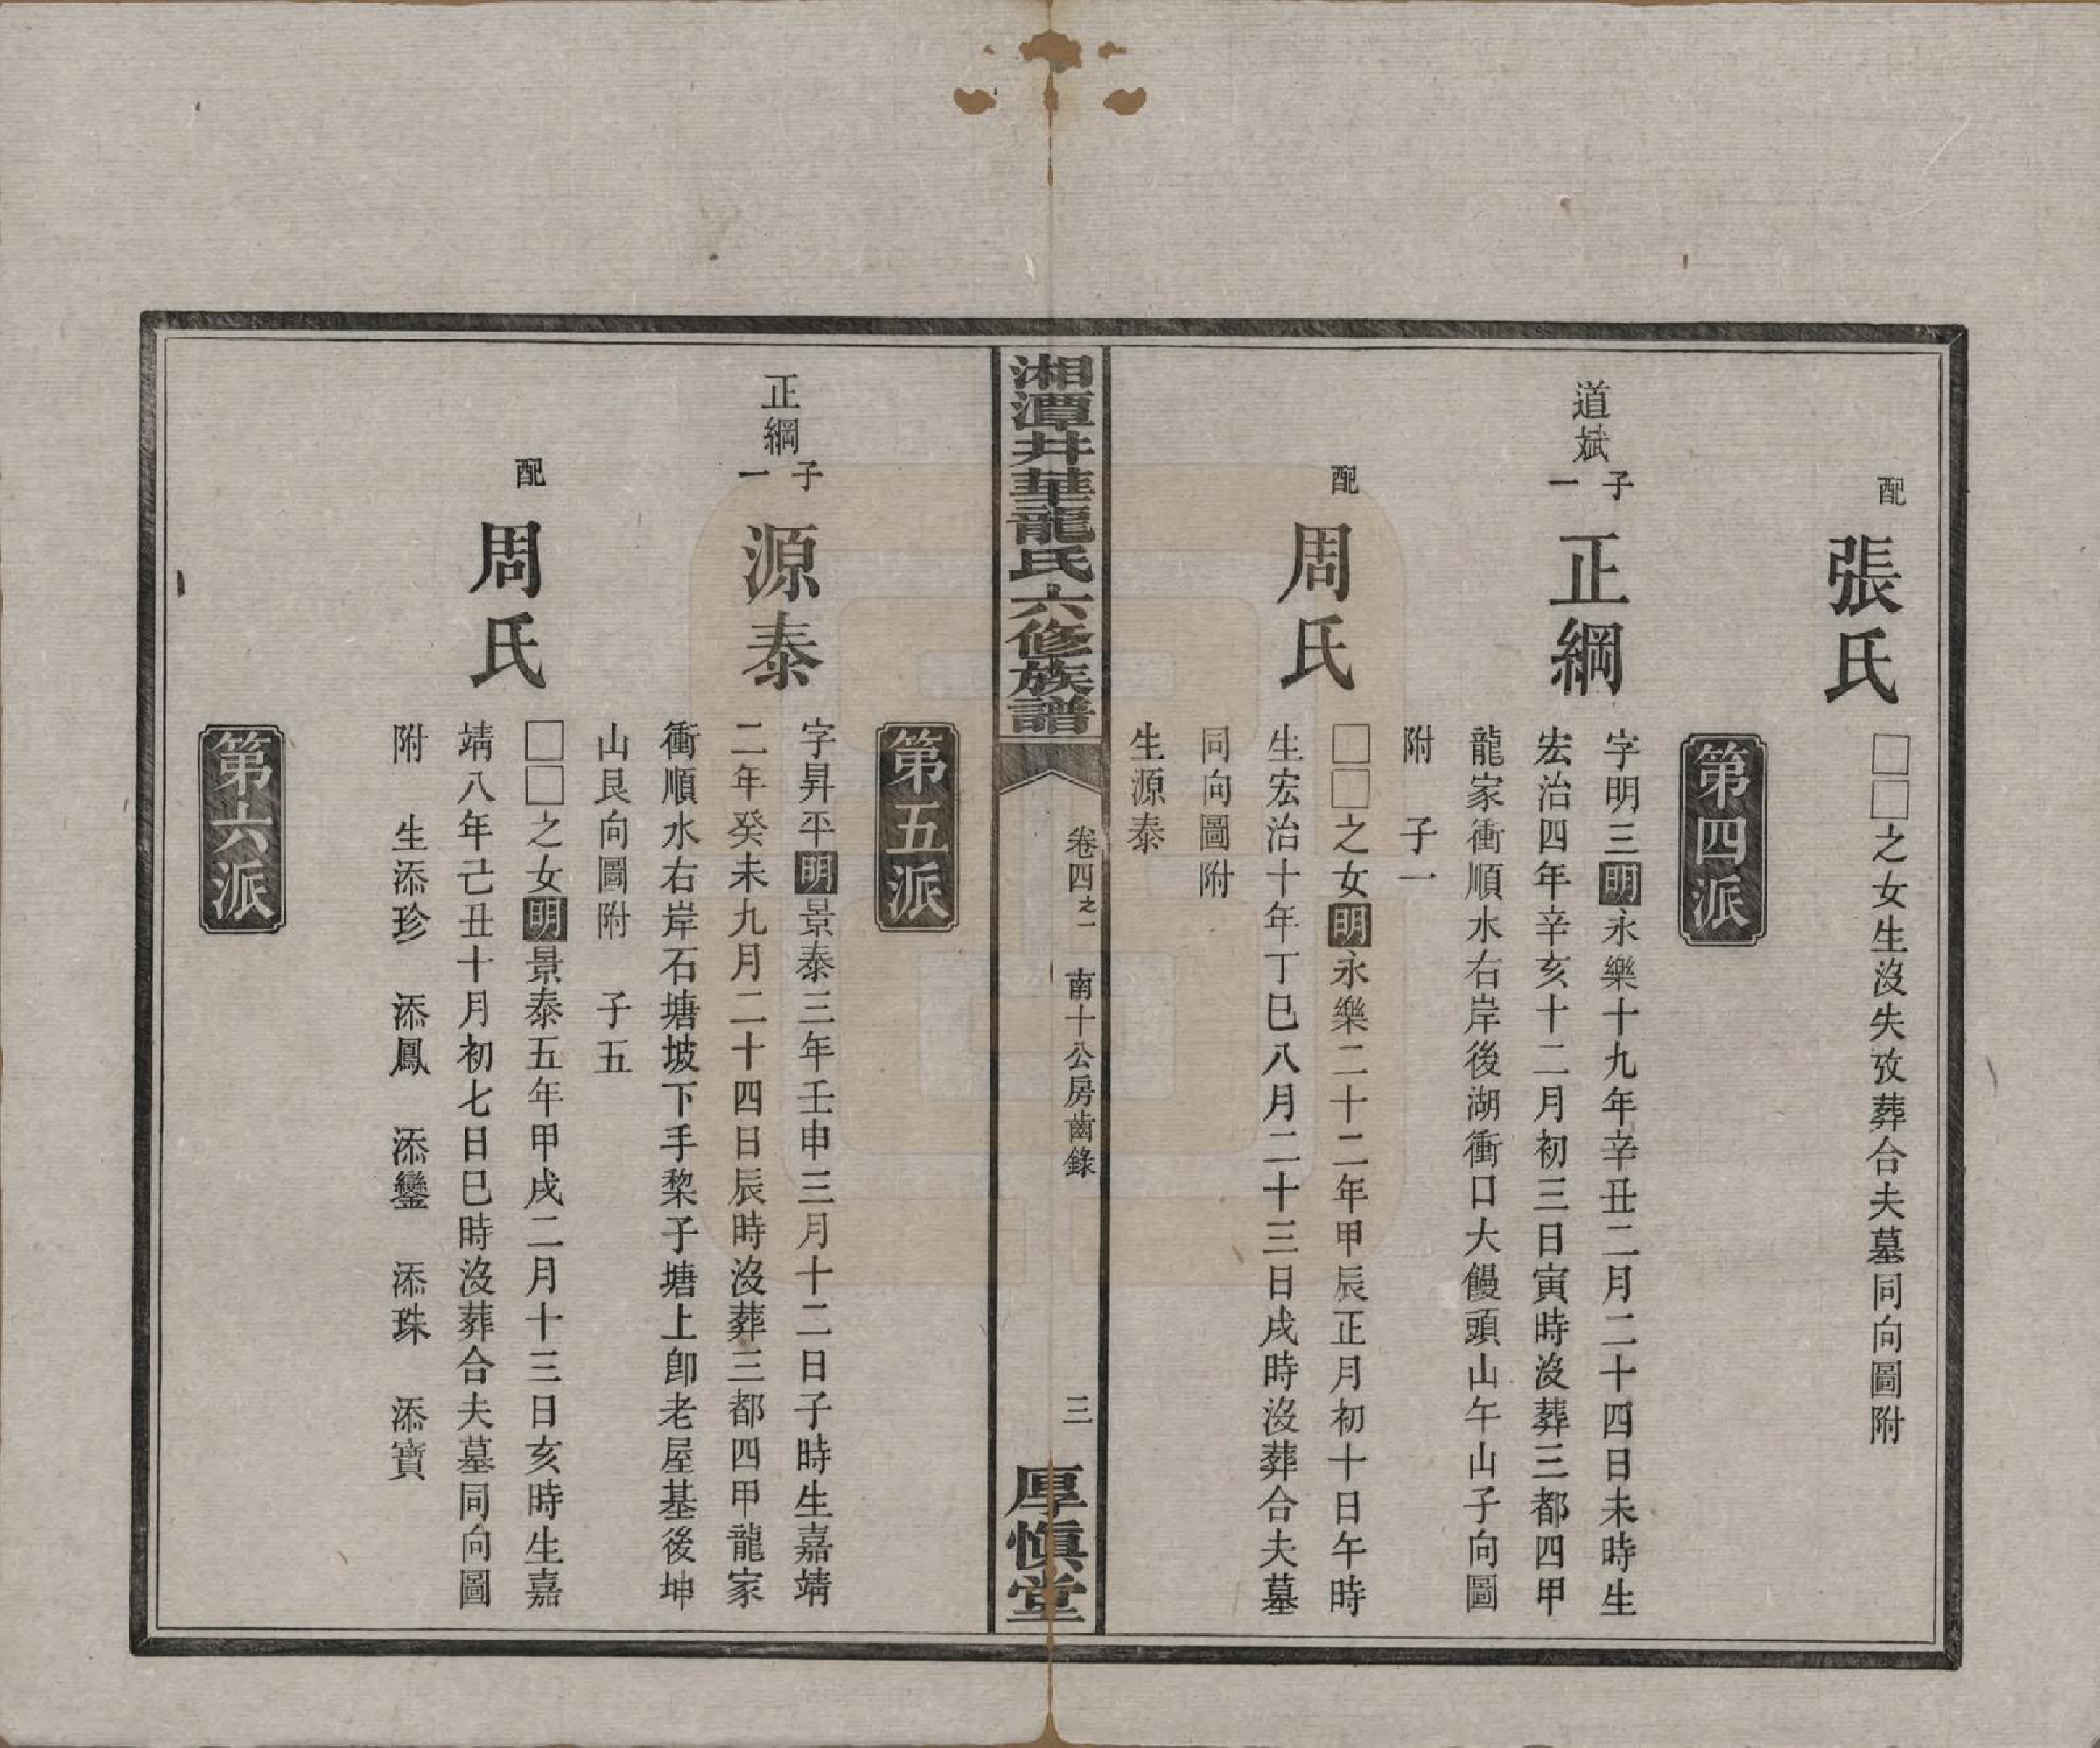 配
張氏
□□之女生沒失攷葬合夫墓同向圖附
第四派
道斌
子一
正綱
字明三明永樂十九年辛丑二月二十四日未時生
宏治四年辛亥十二月初三日寅時沒葬三都四甲
龍家衝順水右岸後湖衝口大饅頭山午山子向圖
附 子一
配
周氏
□□之女明永樂二十二年甲辰正月初十日午時
生宏治十年丁巳八月二十三日戌時沒葬合夫墓
同向圖附
生源泰
湘潭井華龍氏六修族譜
卷四之一 南十公房齒錄
三
厚慎堂
第五派
正綱
子一
源泰
字昇平明景泰三年壬申三月十二日子時生嘉靖
二年癸未九月二十四日辰時沒葬三都四甲龍家
衝順水右岸石塘坡下手棃子塘上卽老屋基後坤
山艮向圖附 子五
配
周氏
□□之女明景泰五年甲戌二月十三日亥時生嘉
靖八年己丑十月初七日巳時沒葬合夫墓同向圖
附 生添珍 添鳳 添鑾 添珠 添寶
第六派